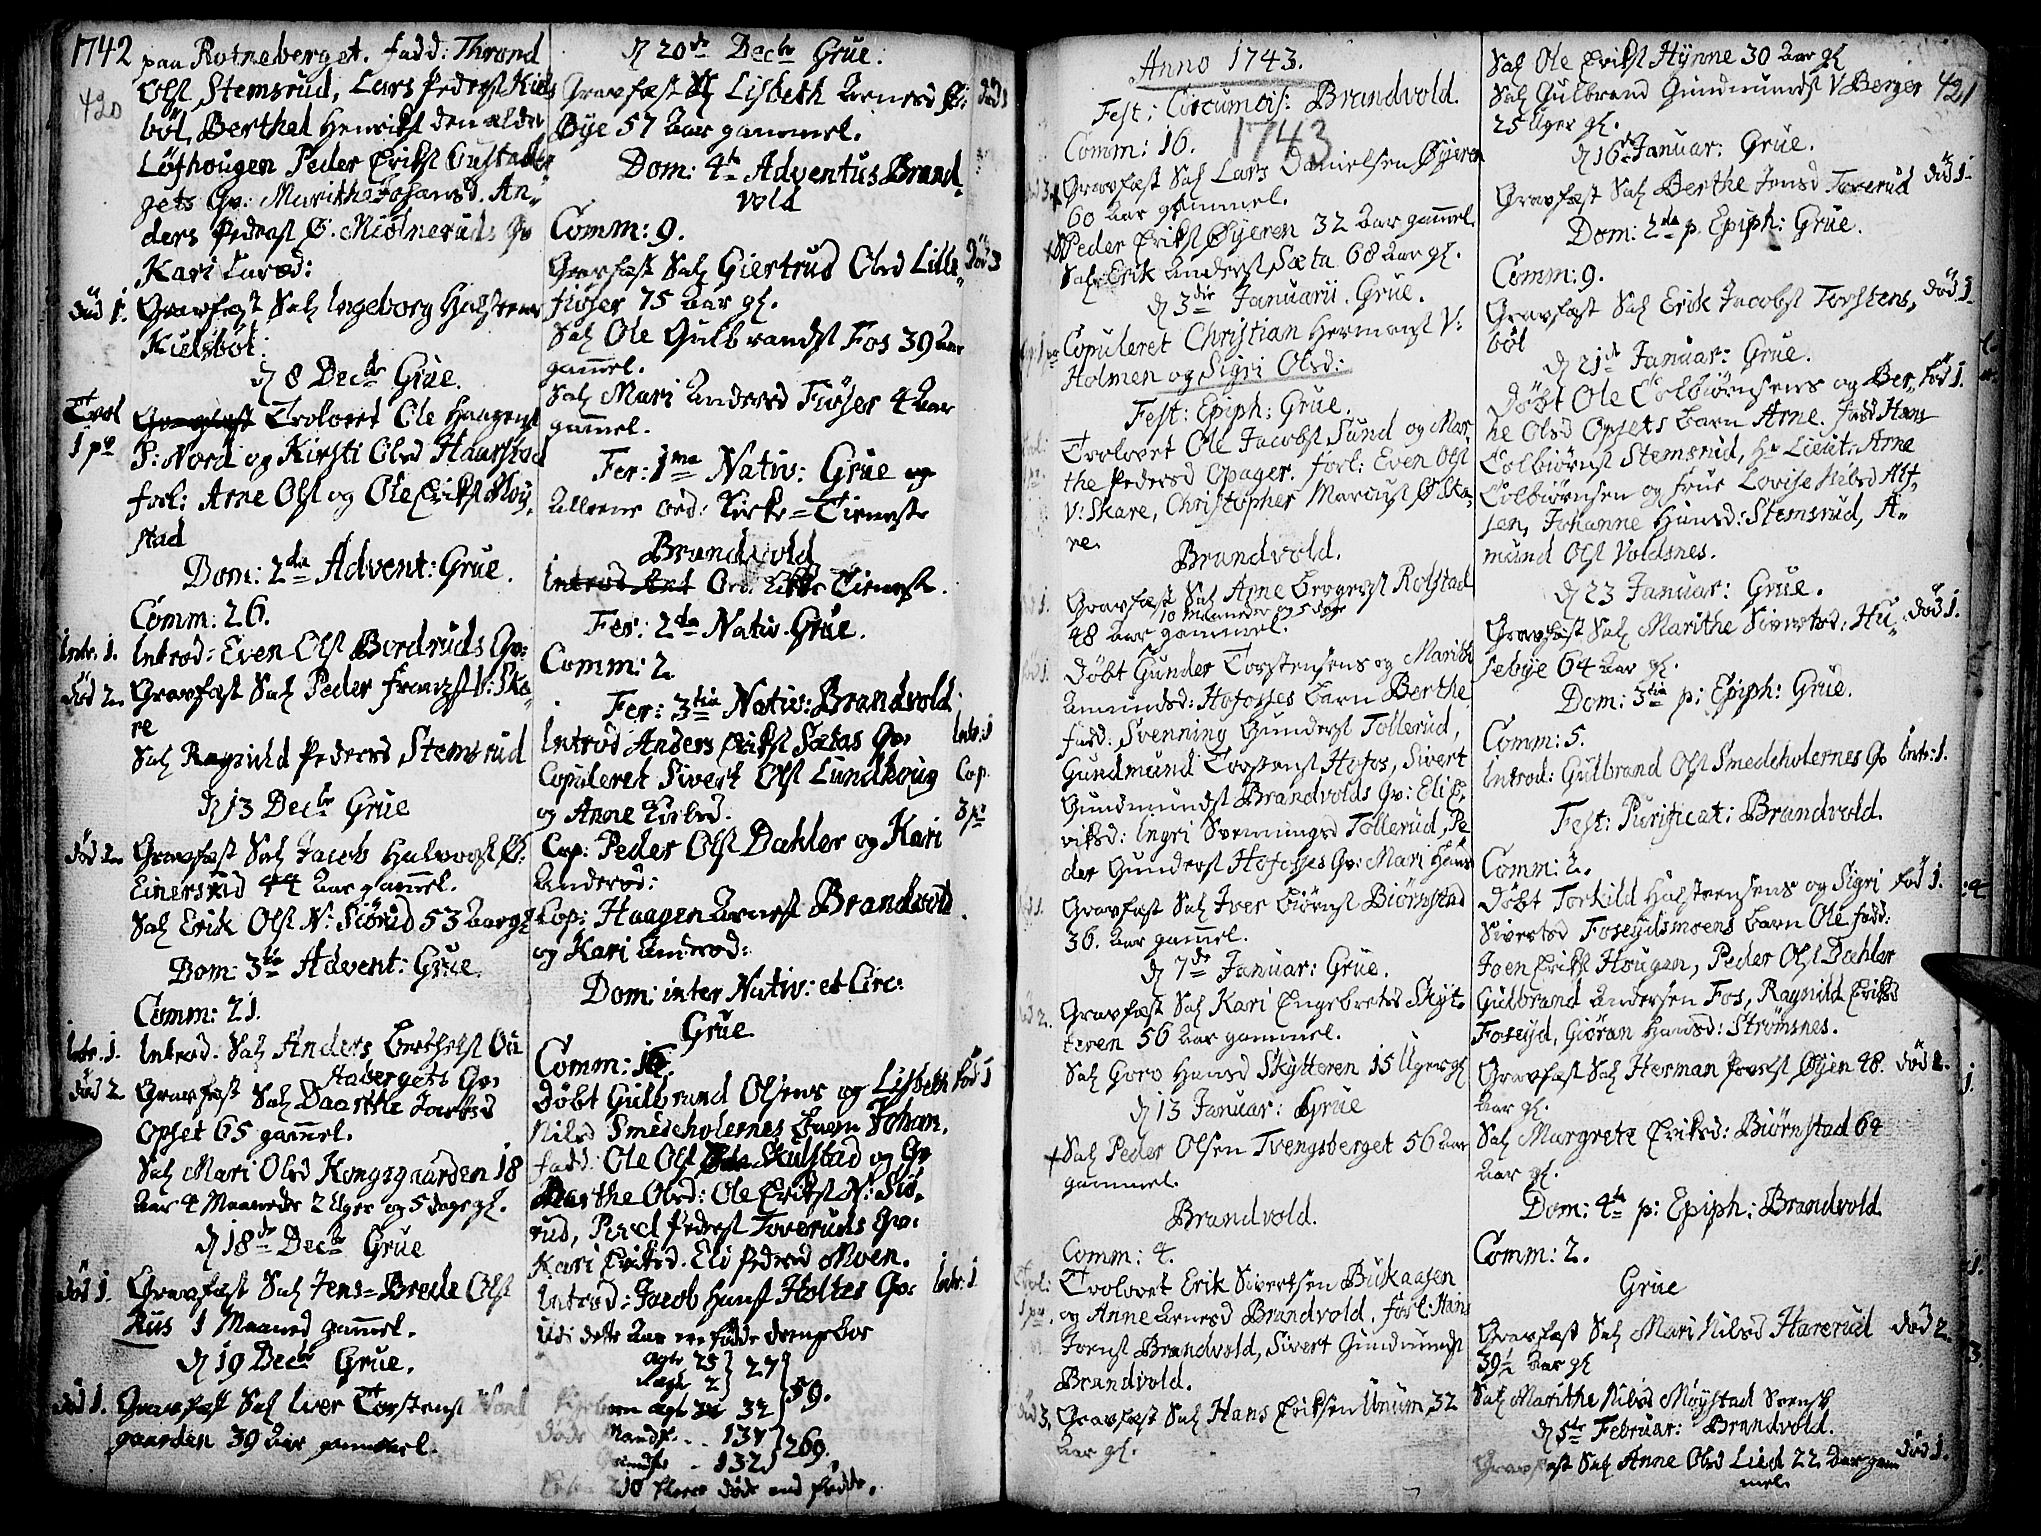 1742
420
paa Rotneberget. fadd: Thrond
Olst Stemsrud, Lars Pederst Kiels
böl, Berthel Henrikst den ældre
Löfthougen Peder Erikst Gustads
gets Qv: Marithe Johansd. An-
ders Pederst Ø. Miölneruds Qv
Kari Larsd:
död 1. Gravfæst Sal Ingeborg Halstens
Kielsböl.
d 8 Decbr Grue.
Trol Trolovet Ole Haagenst
1 pr P: Nord og Kirsti Olsd Haurstad
forl: Arne Olst og Ole Erikst Møy,
stad
Dom: 2da Advent: Grue.
Comm: 26.
Intr. 1. Introd: Even Olst Bordruds Qv:
död 2. Gravfæst Sal Peder Franzst V: Ska-
re
Sal Ragnild Pedersd Stemsrud
d 13 Decbr Grue
död 2. Gravfæst Sal Jacob Halvorst Ø:
Einersrud 44 Aar gammel.
Sal Erik Olst N: Siörud 53 Aar gl
Dom: 3tia Advent: Grue.
Comm: 21.
Intr. 1. Introd. Sal Anders Berthelst Gu
stabergets Qv:
död 2. Gravfæst Sal Daarthe Jacobsd
Opset 65 gammel.
Sal Mari Olsd Kongsgaarden 18
Aar 4 Maaneder 2 Uger og 5 dage gl.
d 18de Decbr Grue
död 1. Gravfæst Sal Jens=Brede Olst
Rus 1 Maaned gammel.
d 19 Decbr Grue.
död 1. Gravfæst Sal Iver Torstenst Nord
gaarden 39 Aar gammel.
d 20de Decbr Grue.
Gravfæst Sal Lisbeth Arnesd Ø: död 1
Øye 57 Aar gammel.
Dom: 4ta Adventus Brand-
vold
Comm: 9.
Gravfæst Sal Giertrud Olsd Lille- död 3
fløser 75 Aar gl.
Sal Ole Gulbrandst Fos 39 Aar
gammel.
Sal Mari Andersd Fiøser 4 Aar
gammel.
Fer: 1ma Nativ: Grue og
Alleene ord: Kirke=Tieneste
Brandvold
Ord. Kirke Tieneste.
Fer: 2da Nativ. Grue.
Comm: 2.
Fer: 3tia Nativ: Brandvold
Introd Anders Erikst Sætas Qv: Intr: 1
Copuleret Sivert Olst Lundhoug Cop.
og Anne Larsd. 3 pr
Cop: Peder Olst Dahler og Kari
Andersd:
Cop: Haagen Arnest Brandvold
og Kari Andersd:
Dom: inter Nativ: et Circ:
Grue
Comm: 16.
Døbt Gulbrand Olsens og Lisbeth föd 1
Nilsd Smedeholernes Barn Johan.
fadd: Ole Olst Skulstad og Qv
Marthe Olsd: Ole Erikst N: Siö-
rud, Peder Pederst Toveruds Qv:
Kari Eriksd. Eli Pedersd Moen.
Introd: Jacob Hanst Holtes Qv: Intr. 1
Udi dette Aar ere fødde drengebør
Ægte 25 } 27
Uægte 2
ern Ægte 32 } 59.
Døde Mandk. . 137 } 269.
Qvindk. . 132
210 fleere døde end fødde.
Anno 1743.
Fest: Circumcis: Brandvold.
Comm: 16. 1743
död 3. Gravfæst Sal Lars Danielsen Øyeren
60 Aar gammel.
Peder Erikst Øyeren 32 Aar gammel
Sal Erik Anderst Sæta 68 Aar gl.
d 3die Januarii. Grue.
Cop. 1 pr Copuleret Christian Hermanst V:
Holmen og Sigri Olsd:
Fest: Epiph: Grue.
Trolovet Ole Jacobst Sund og Mar-
the Pedersd Opager. forl: Even Olst
V: Skare, Christopher Marcust Ø Ska-
re.
Brandvold.
död 1. Gravfæst Sal Arne Bergerst Rolstad
48 Aar 10 Maaneder og 5 dage gammel.
föd 1. Døbt Gunder Torstensens og Marithe
Amundsd: Hofosses Barn Berthe
fadd: Svenning Gunderst Tollerud,
Gundmund Torstenst Hofos, Sivert
Gundmundst Brandvolds Qv: Eli E-
riksd: Ingri Svenningsd Tollerud, Pe
der Gunderst Hofosses Qv: Mari Hans
död 1. Gravfæst Sal Iver Biörnst Biörnstad
36. Aar gammel.
d 7de Januar: Grue.
död 2. Gravfæst Sal Kari Engebretsd Skyt-
teren 56 Aar gammel.
Sal Goro Hansd Skytteren 15 Uger gl
d 13 Januar: Grue
Sal Peder Olsen Tvengsberget 56 Aar
gammel.
Brandvold.
Comm: 4.
Trol: Trolovet Erik Sivertsen Bukaasen
1 pr. og Anne Arnesd Brandvold, forl: Hans
Jonst Brandvold, Sivert Gundmundst
Brandvold.
död 3. Gravfæst Sal Hans Eriksen Unum 32
Aar gl.
421
Sal Ole Erikst Hynne 30 Aar gl
Sal Gulbrand Gundmundst V Berger
25 Uger gl.
d 16de Januar: Grue.
Gravfæst Sal Berthe Jensd Toverud död 1.
Dom: 2da p. Epiph: Grue.
Comm: 9.
Gravfæst Sal Erik Jacobst Torstens- död 1.
böl
d 21de Januar: Grue.
Døbt Ole Colbiørnsens og Ber- föd 1.
he Olsd Opsets Barn Arne. fadd Hans
Colbiørnst Stemsrud, Hr Lieut: Arne
Colbiørnsen og Frue Lovise Nilsd Alf-
sen, Johanne Hansd: Stemsrud, A-
mund Olst Voldsnes.
d 23 Januar: Grue.
Gravfæst Sal Marithe Sivertsd: Hu- död 1.
sebye 64 Aar gl.
Dom: 3tia p: Epiph: Grue.
Comm: 5.
Introd: Gulbrand Olst Smedeholernes Qv Intr: 1.
Fest: Purificat: Brandvold.
Comm: 2.
Döbt Torkild Halsteensens og Sigri föd 1.
Sivertsd Foseydsmoens Barn Ole fadd:
Joen Erikst Hougen, Peder Olst Dahler
Gulbrand Andersen Fos, Ragnild Eriksd
Foseyd, Giöran Hansd: Strömsnes.
Gravfæst Sal Herman Povelst Øyen 48. död 2.
Aar gl.
Sal Margrete Eriksd: Biørnstad 64
Aar gl.
Dom: 4ta p: Epiph: Brandvold.
Comm: 2.
Grue
Gravfæst Sal Mari Nilsd Harerud död 2.
39½ Aar gl
Sal Marithe Nilsd Møystad Svensk
d 5te Februar: Brandvold.
Gravfæst Sal Anne Olsd Lied 22 Aar gam död 1.
mel.